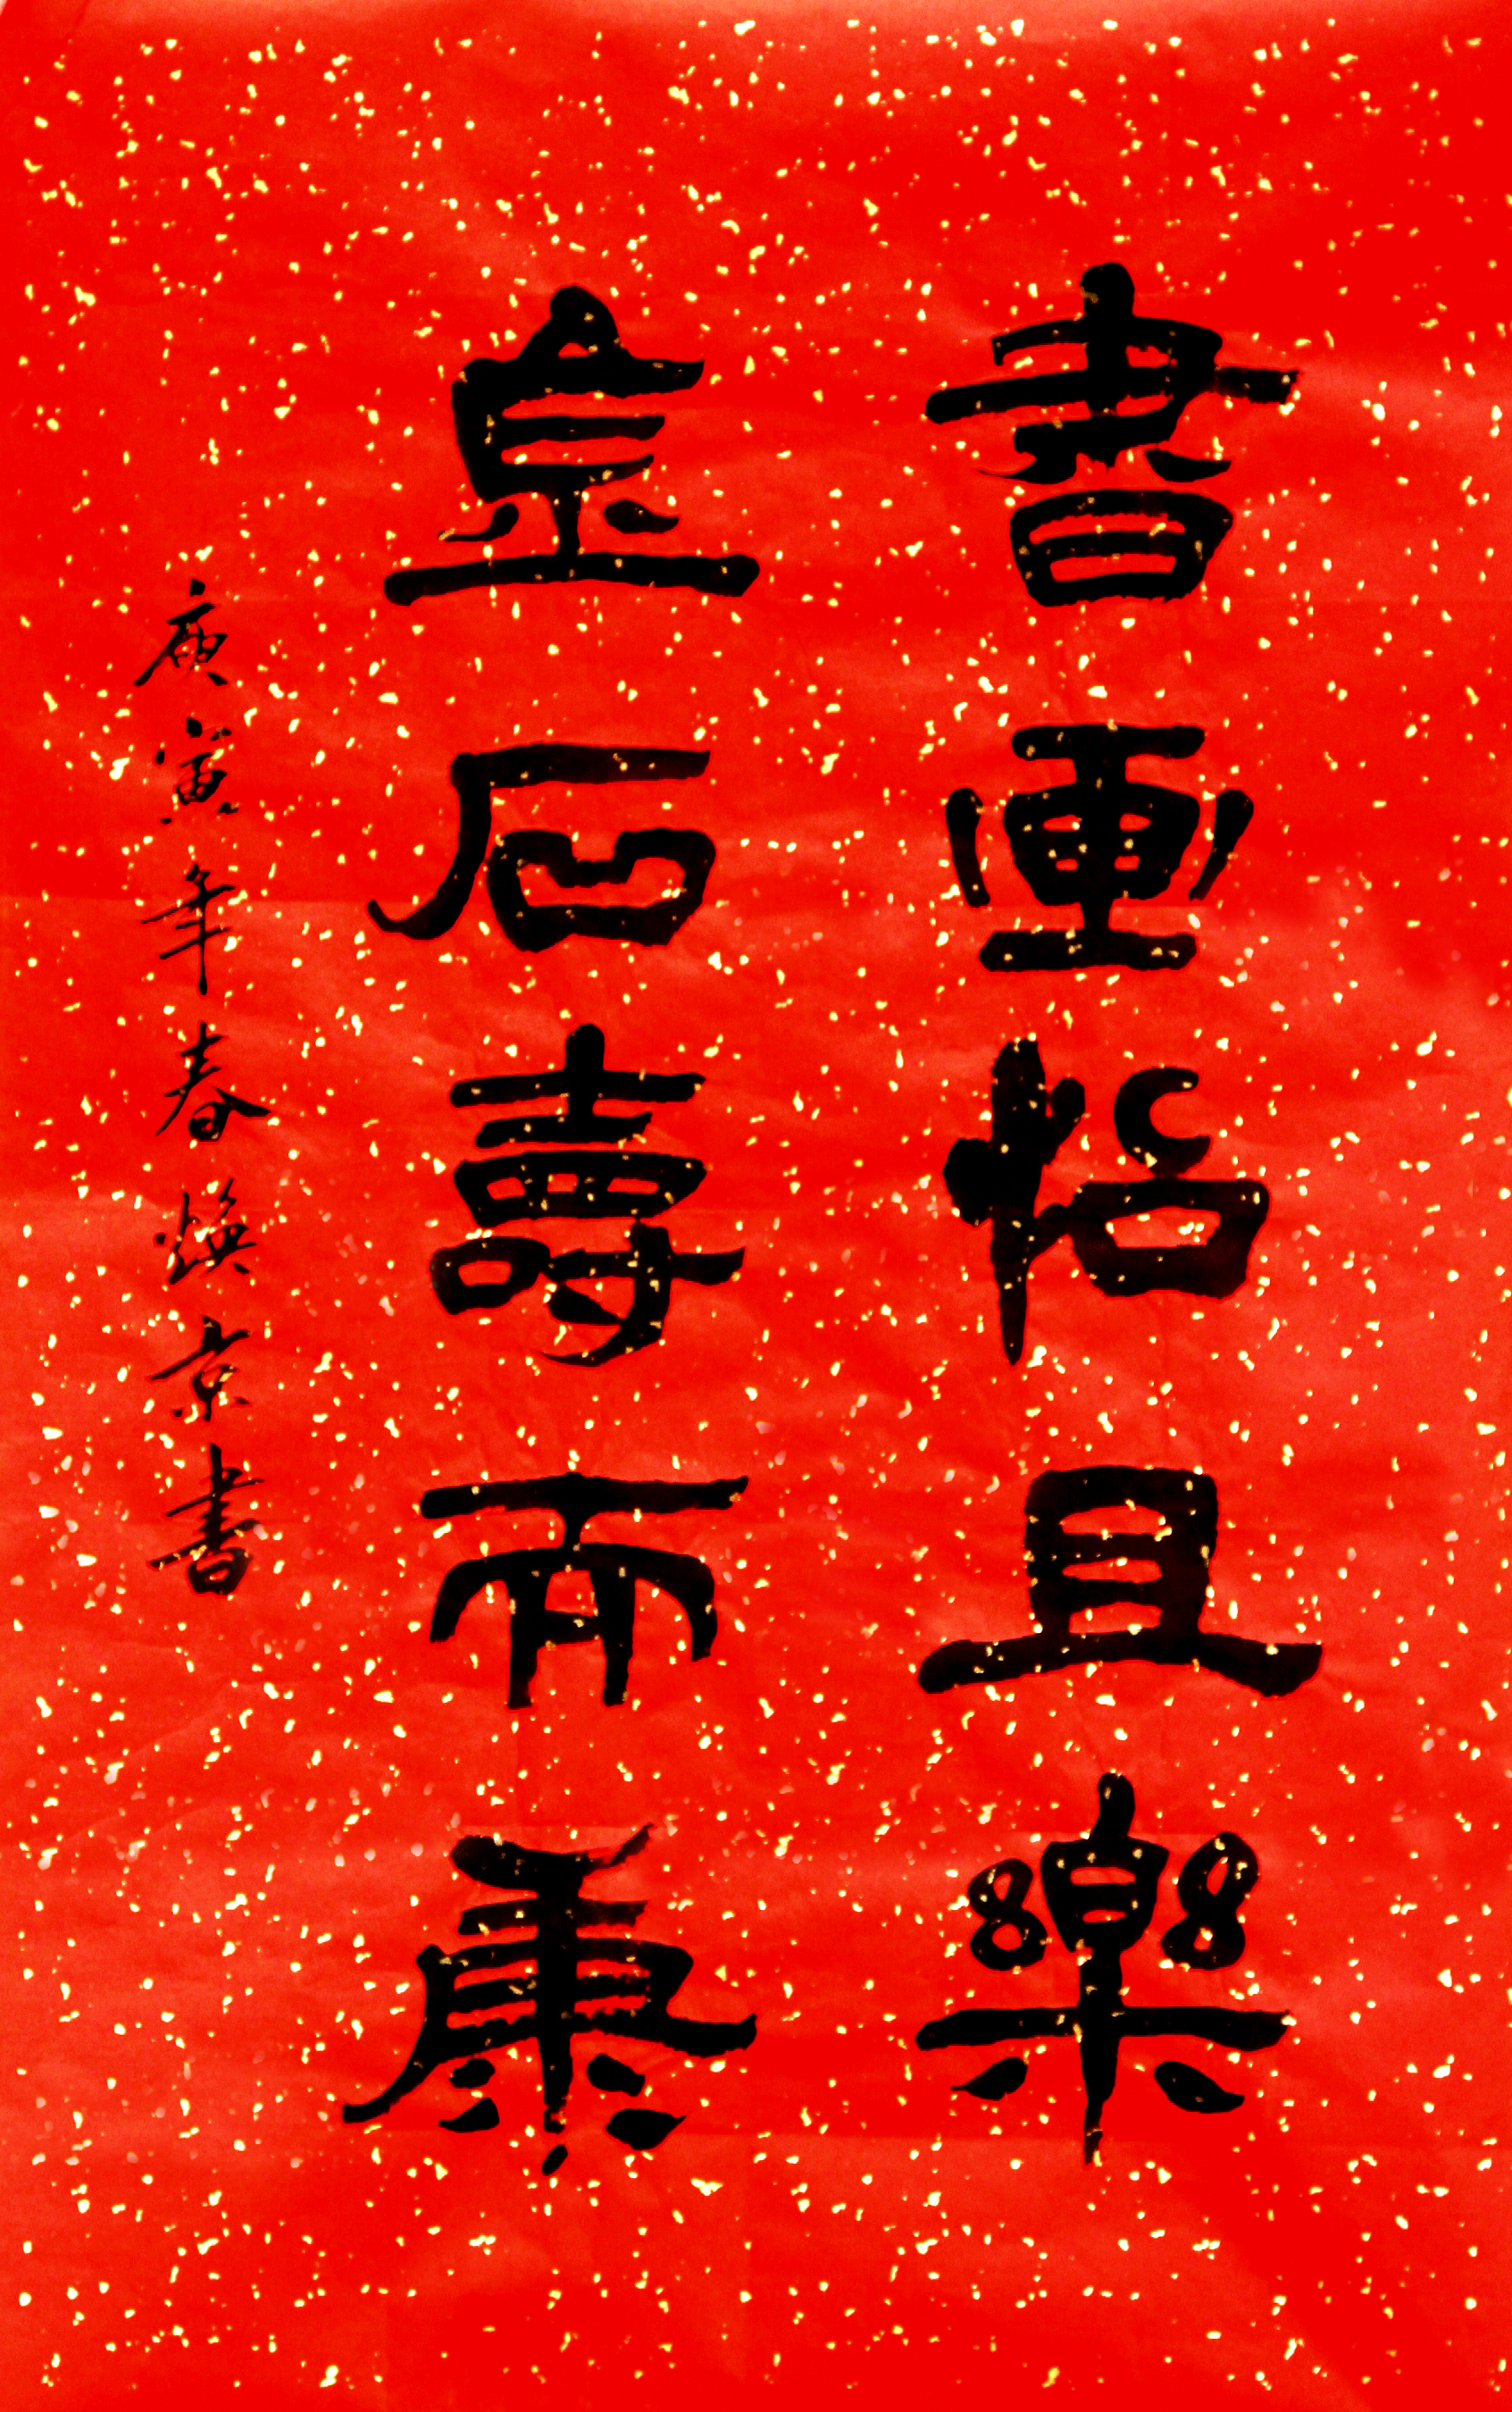 書画怡且樂
金石壽而康
庚寅年春煥京書